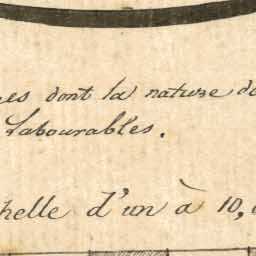 es dont la nature d
Labourables.
helle d'un à 10,